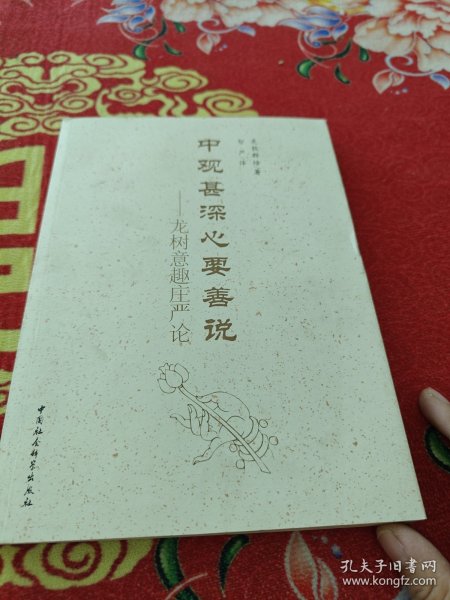 中观甚深心要善说
——龙树意趣庄严论
中国社会科学出版社
孔夫子旧书网
www.kongfz.com